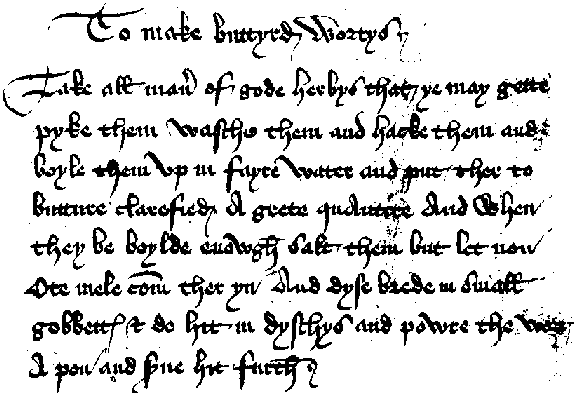 To make buttyrd wortys
Take all man' of gode herbys that ye may gette
pyke them wasche them and hacke them and
boyle them vp in fayre water and put ther to
butture clarefied A grete quantite And when
they be boylde enowgh salt them but let non
Ote mele com ther yn And dyse brede in small
gobbett & do hit in dyschys and powre the wortys
A pon and serve hit furth